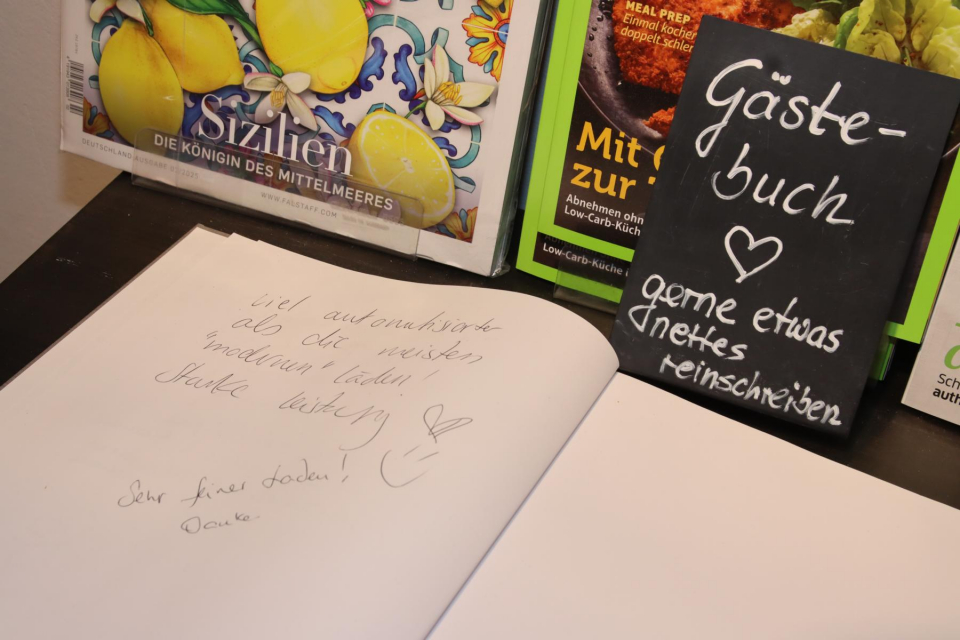 Sizilien
DIE KÖNIGIN DES MITTELMEERES
WWW.FALSTAFF.COM
MEAL PREP
Einmal kochen
doppelt
Mit
zur
Abnehmen
Low-Carb-Küche
Low-Carb-Küche
Gäste-
buch
gerne etwas
nettes
reinschreiben
viel automatisierter
als die meisten
"modernen" Läden!
Starke Leistung
Sehr feiner Laden!
Danke.
Sch
auth